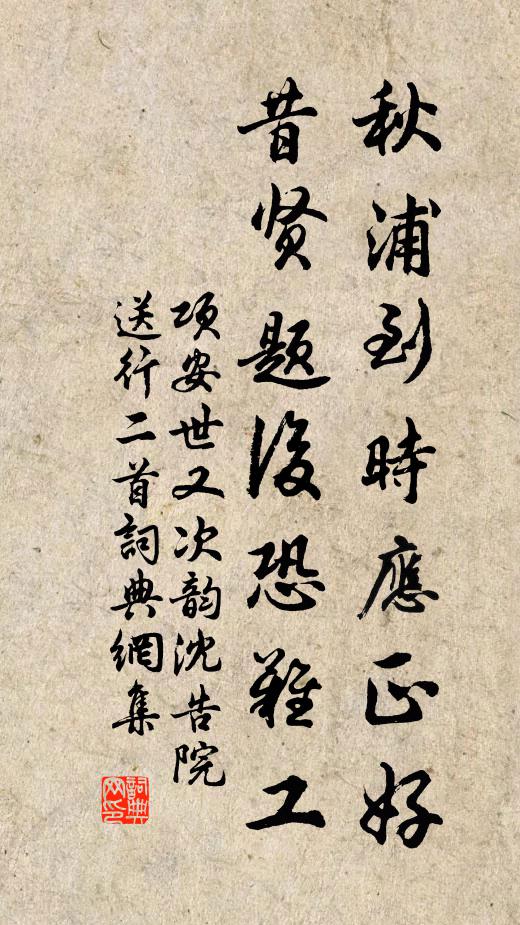 秋浦到時應正好
昔贤題後恐難工
項安世又次韵沈告院
送行二首詞典網集
詞典网印